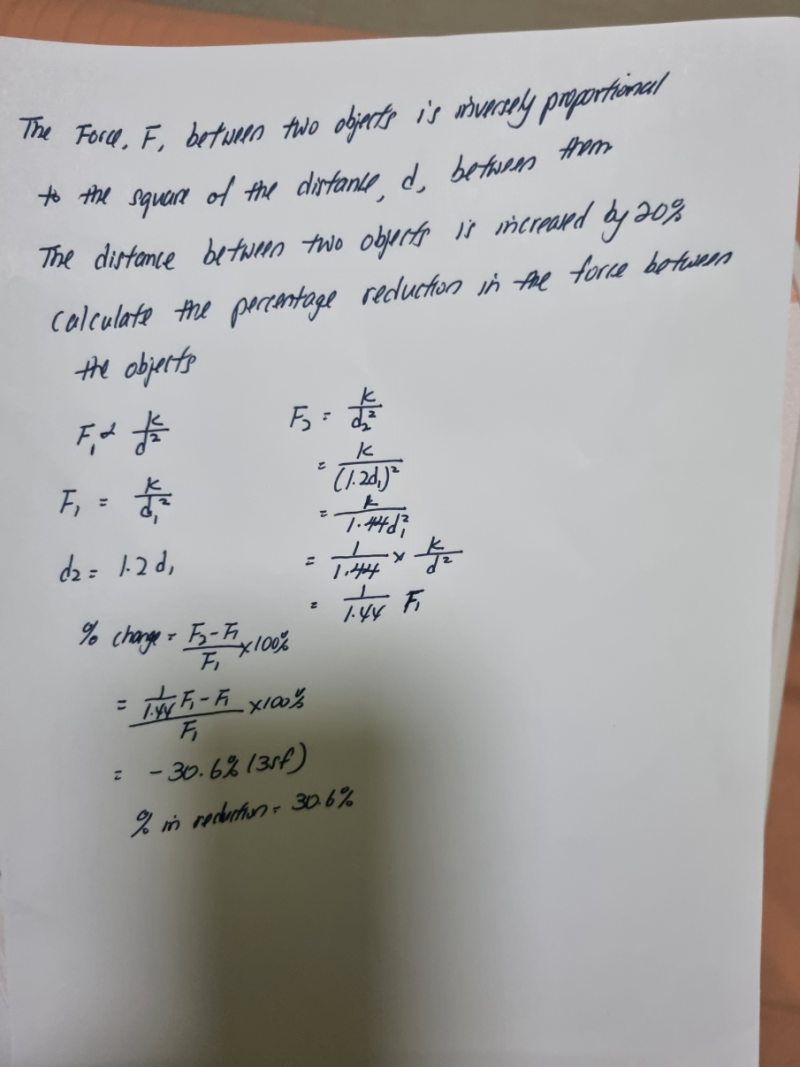 The Force, F, between two objects is inversely proportional
to the square of the distance, d, between them
The distance between two objects is increased by 20%
Calculate the percentage reduction in the force between
the objects
F₁ ∝ k/d²
F₁ = k/d₁²
d₂ = 1.2 d₁
F₂ = k/d₂²
= k/(1.2d₁)²
= k/1.44d₁²
= 1/1.44 × k/d²
= 1/1.44 F₁
% change = (F₂-F₁)/F₁ ×100%
= (1/1.44 F₁ - F₁)/F₁ ×100%
= -30.6% (3sf)
% in reduction = 30.6%